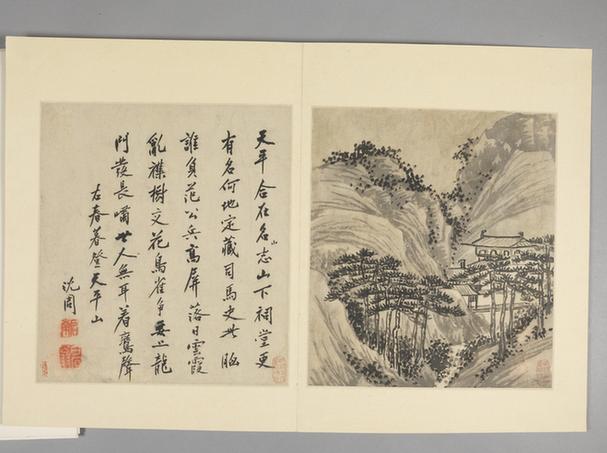 天平合在名山志山下祠堂更
有名何地定藏司馬史此胸
誰負范公兵高屏落日雲霞
亂襍樹交花鳥雀爭要上龍
門發長嘯世人無耳着鸞聲
右春暮登天平山
沈周